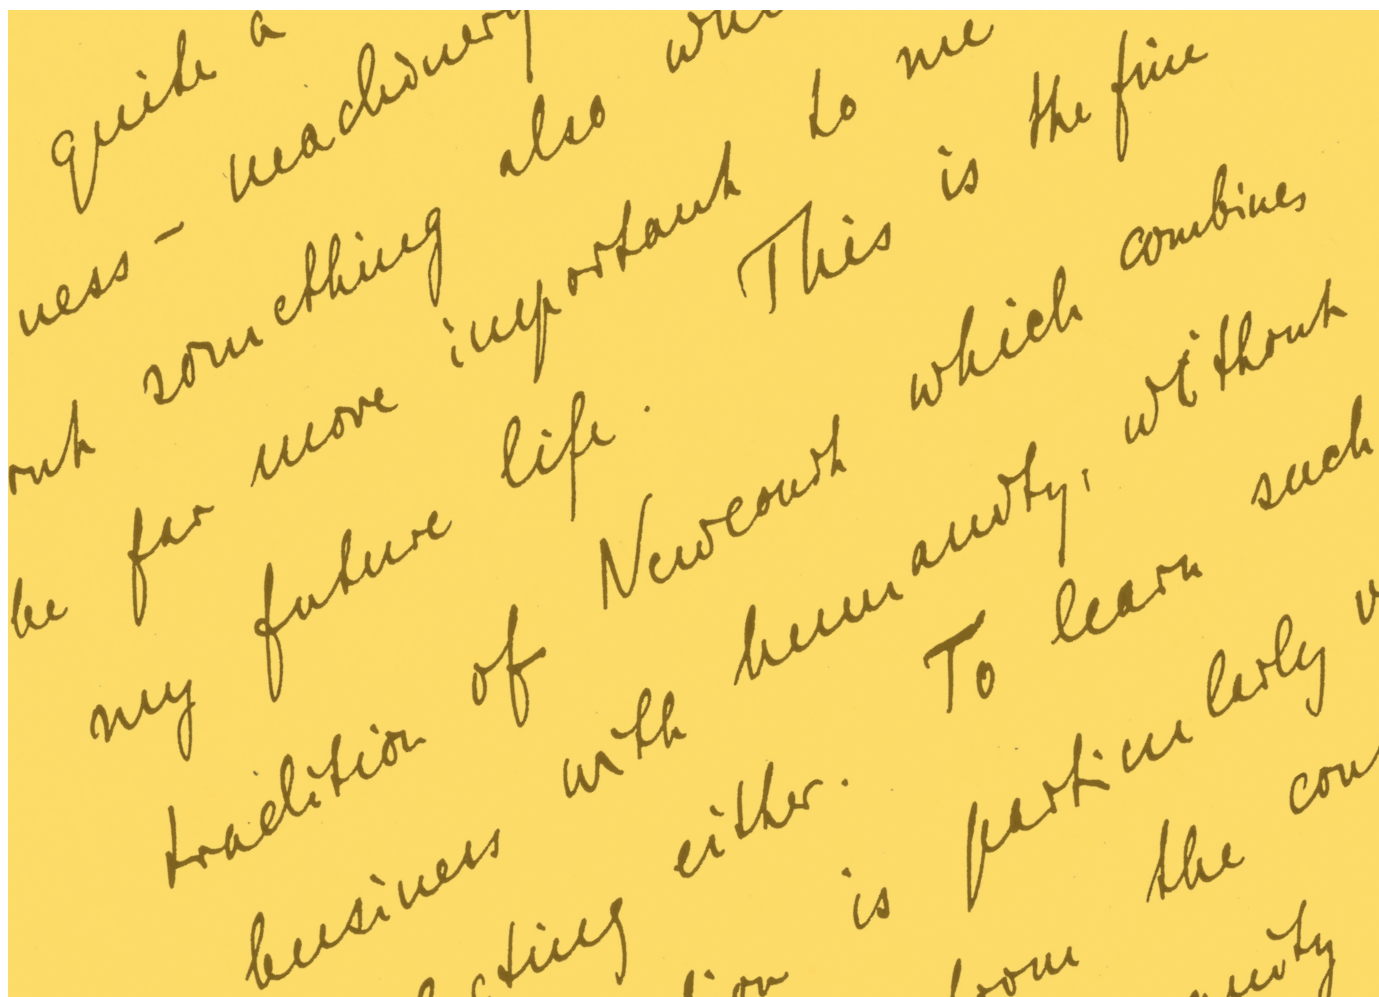 quite a
ness - machinery
out something also
be far more important to me
my future life. This is the fine
tradition of Newcourt which combines
business with humanity, without
lecting either. To learn such
ion is particularly
from the con
anity